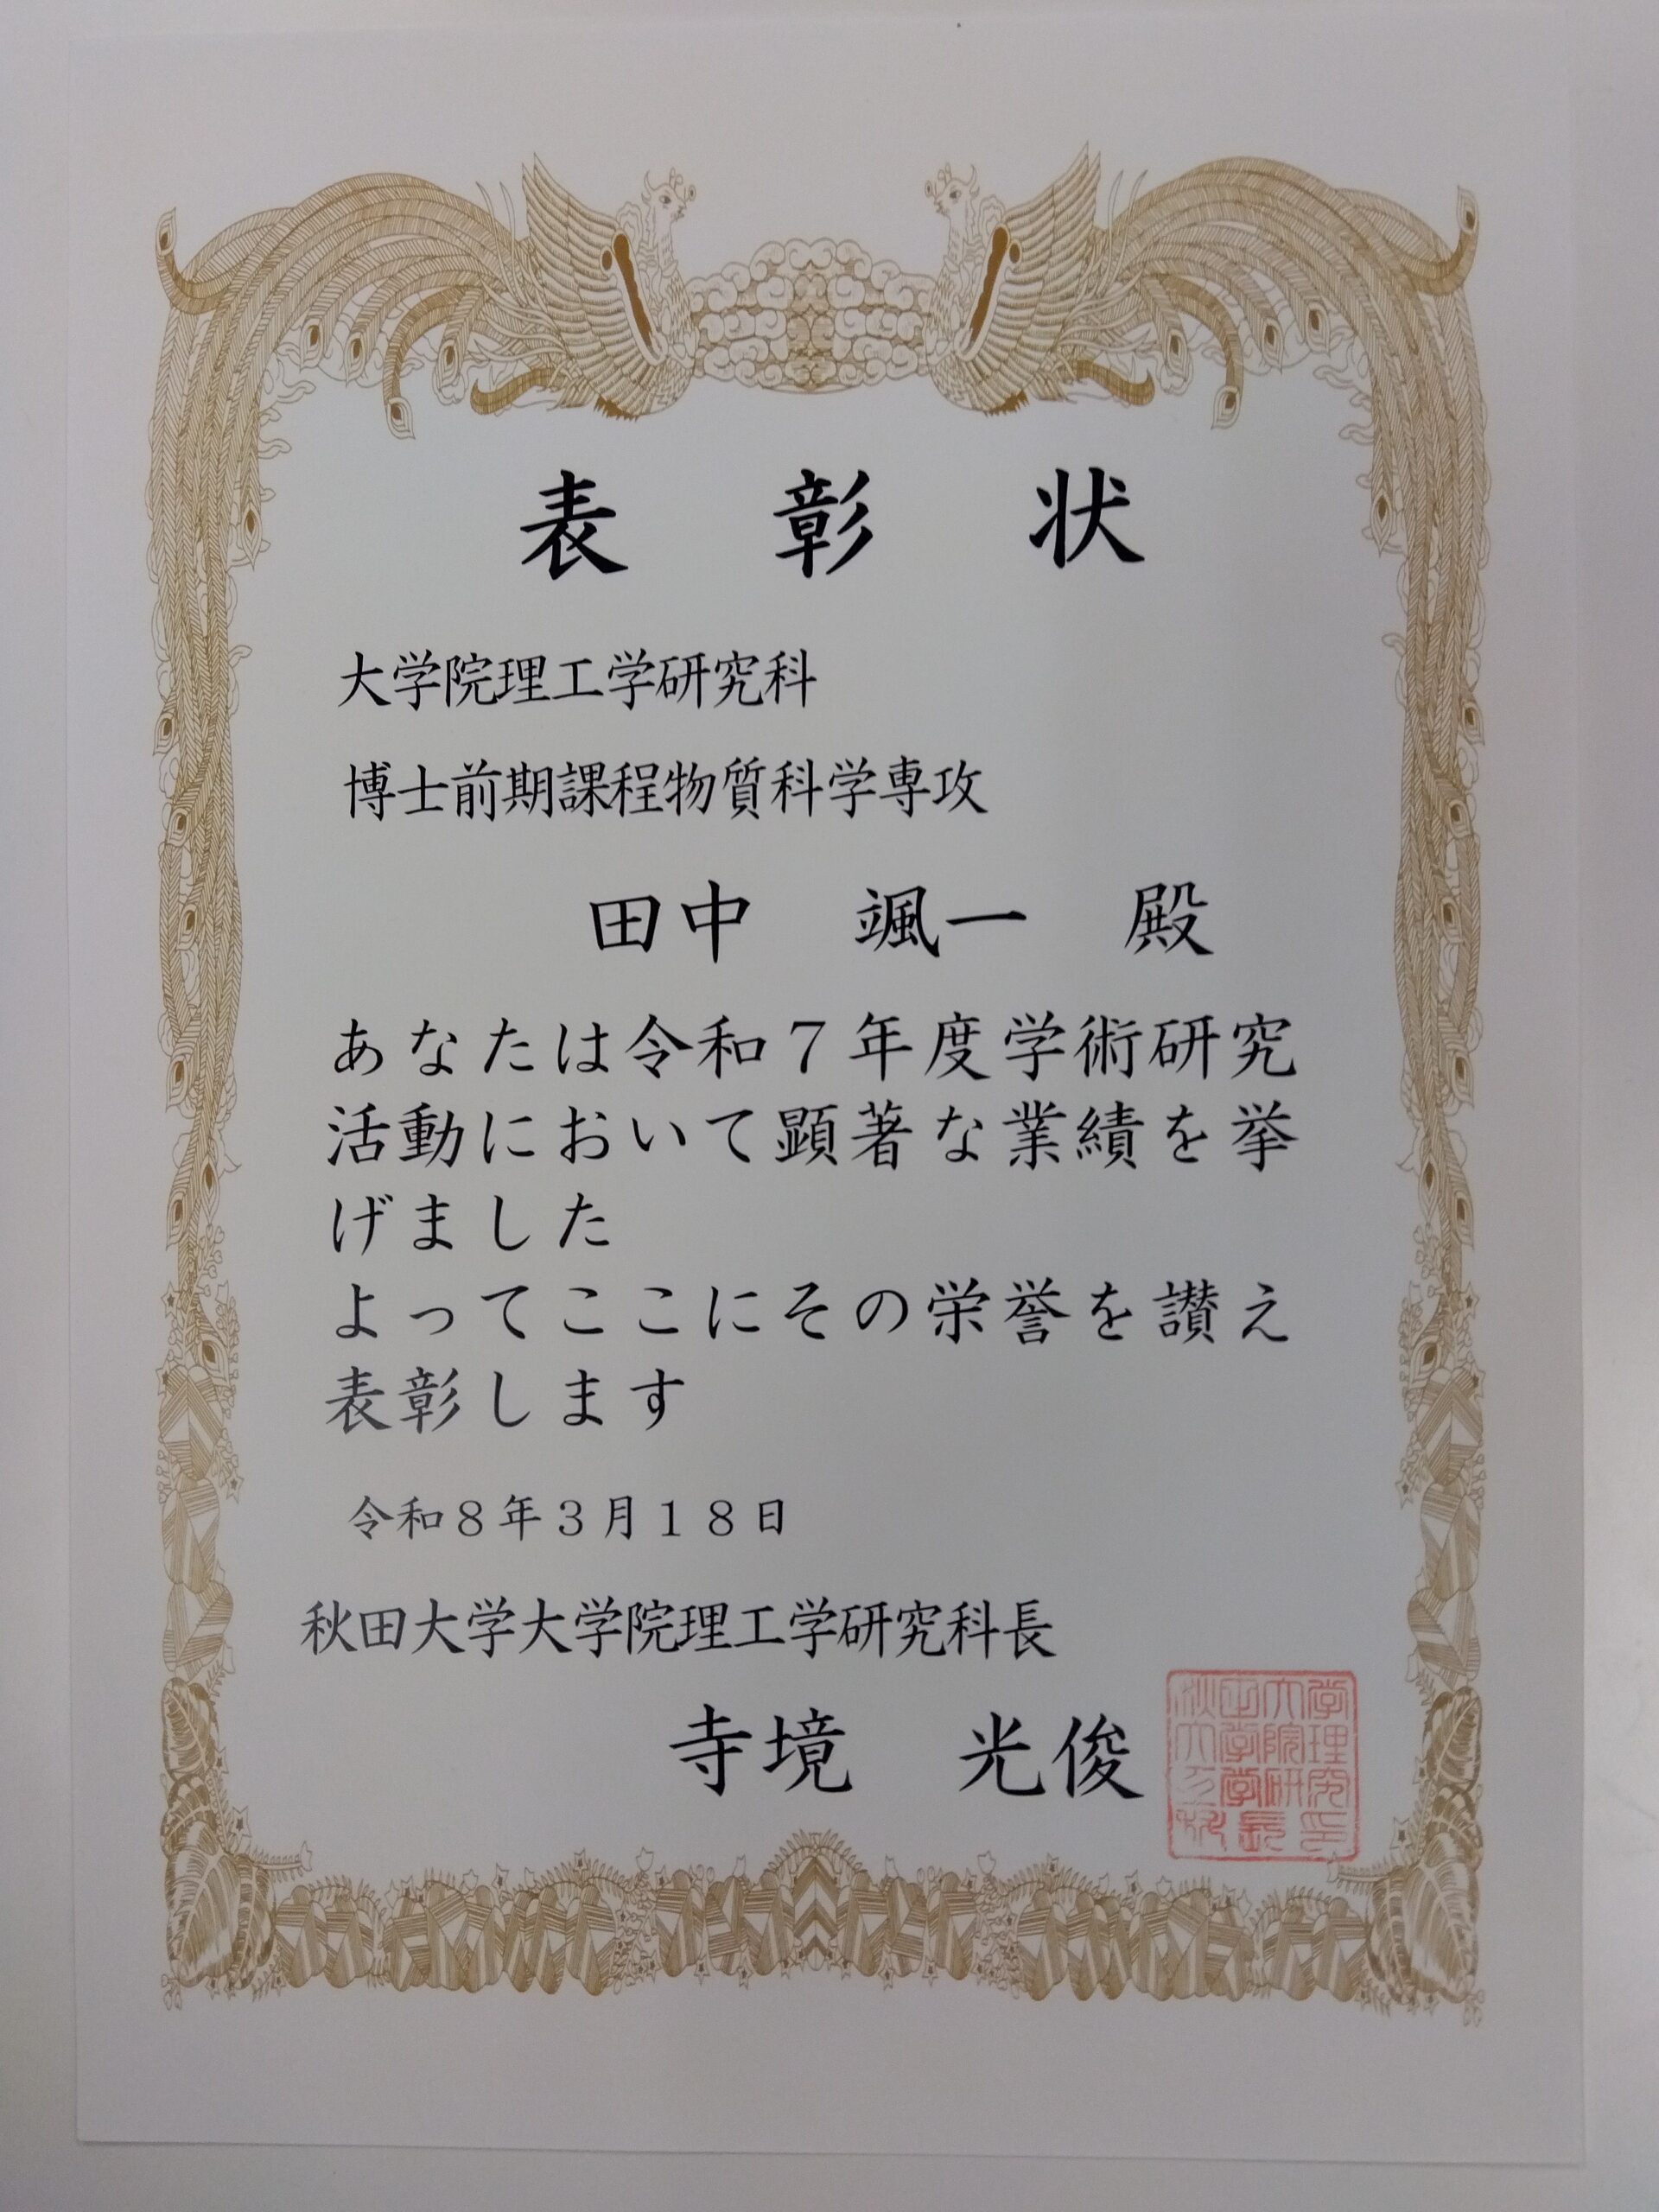 表彰状
大学院理工学研究科
博士前期課程物質科学専攻
田中　颯一　殿
あなたは令和７年度学術研究
活動において顕著な業績を挙
げました
よってここにその栄誉を讃え
表彰します
令和８年３月１８日
秋田大学大学院理工学研究科長
寺境　光俊